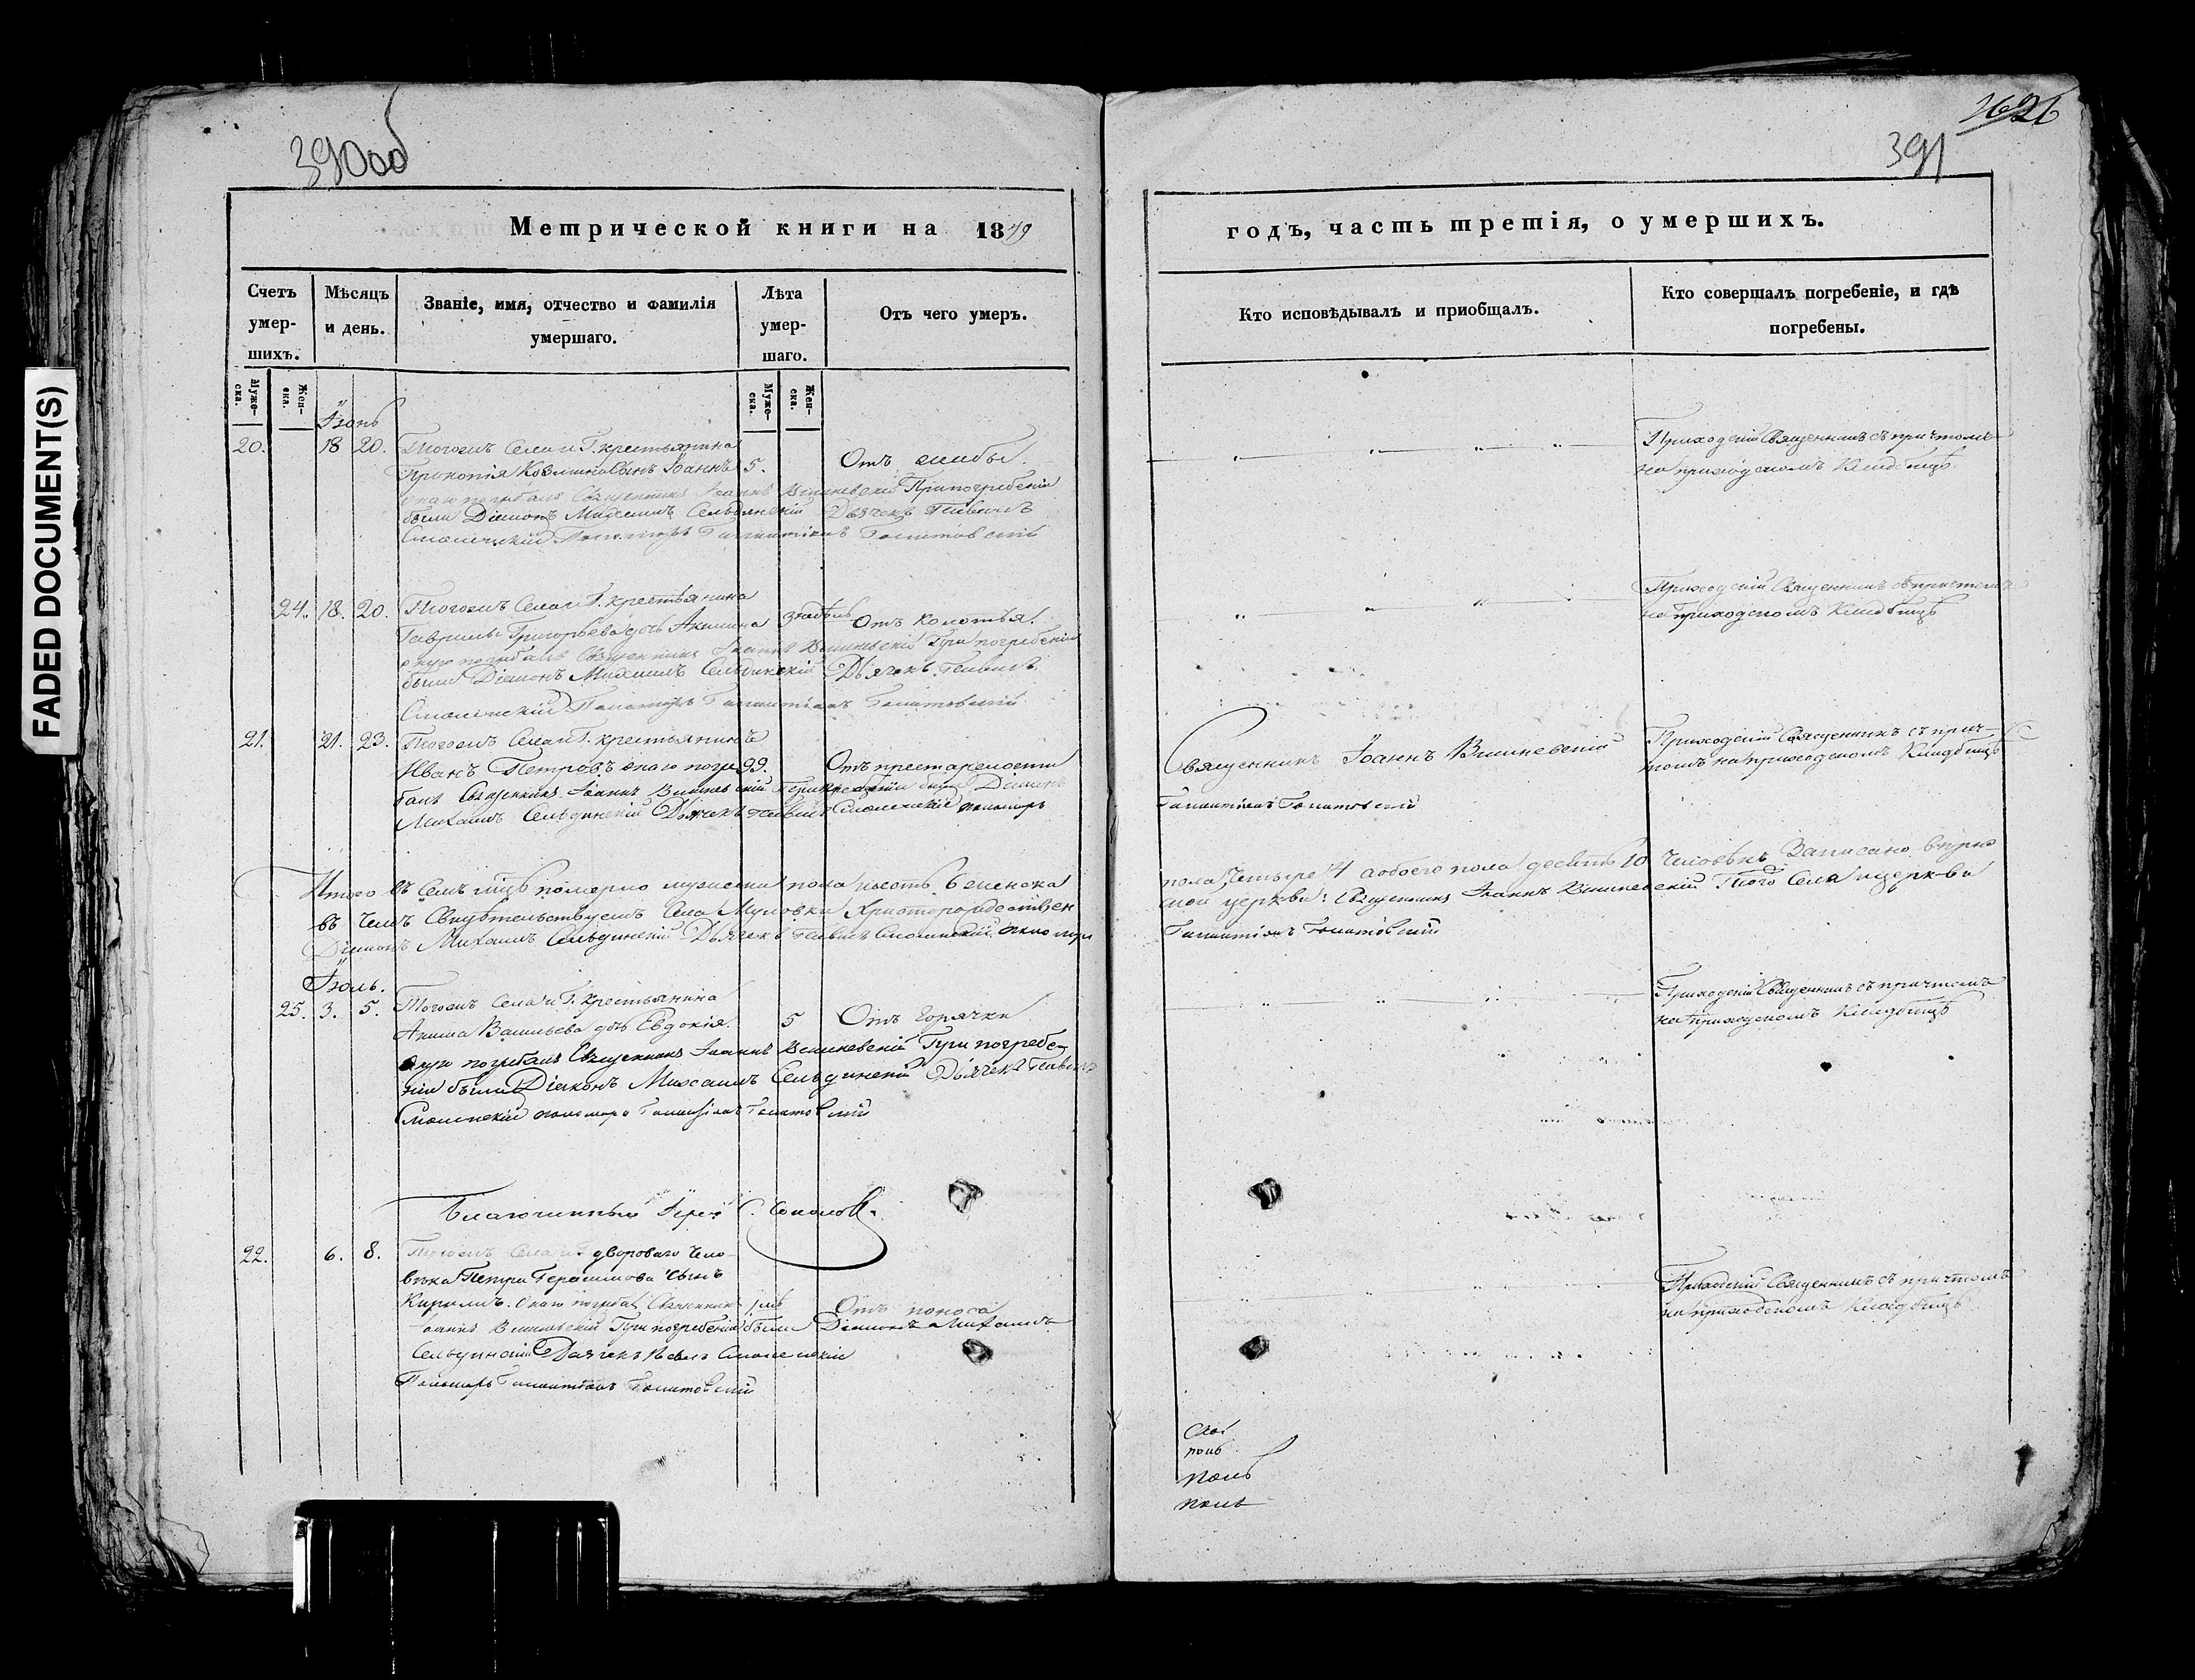 FADED DOCUMENT(S)
390об
391
Метрической книги на 1849
годъ, часть третія, о умершихъ.
Счетъ умер-шихъ.
Мѣсяцъ и день.
Званіе, имя, отчество и фамилія умершаго.
Лѣта умер-шаго.
Отъ чего умеръ.
Кто исповѣдывалъ и приобщалъ.
Кто совершалъ погребеніе, и гдѣ погребены.
Муже-ска.
Жен-ска.
Муже-ска.
Жен-ска.
Іюнь
20. 18 20. Тогожъ Села и Г. крестьянина
Прокопія Козмина Сынъ Іоаннъ 5. Отъ
онаго погребалъ Священникъ Іоаннъ Вишневскій При погребеніи
были Діаконъ Михаилъ Сельдинскій Дьячекъ Павелъ
Смоленскій Пономарь
Приходскій Священникъ съ причтомъ
на приходскомъ Кладбищѣ
24. 18. 20. Тогожъ Села и Г. крестьянина
Гаврилы Григорьева дочь Акилина 3 недѣль Отъ колотья.
оную погребалъ Священникъ Іоаннъ Вишневскій При погребеніи
были Діаконъ Михаилъ Сельдинскій Дьячекъ Павелъ
Смоленскій Пономарь
Приходскій Священникъ съ причтомъ
на Приходскомъ Кладбищѣ
21. 21. 23. Тогожъ Села и Г. крестьянинъ
Иванъ Петровъ онаго погре 99. Отъ престарелости
балъ Священникъ Іоаннъ Вишневскій При погребеніи были Діаконъ
Михаилъ Сельдинскій Дьячекъ Павелъ Смоленскій пономарь
Священникъ Іоаннъ Вишневскій
Приходскій Священникъ съ прич-
томъ на приходскомъ Кладбищѣ
Итого въ Семъ мцѣ померло мужеска пола шесть 6 женска
пола четыре 4 а обоего пола десять 10 Человѣкъ Записано вѣрно
въ чемъ Свидѣтельствуемъ Села Христорождественской церкви: Священникъ Іоаннъ Вишневскій Того Села и церкви
Діаконъ Михаилъ Сельдинскій Дьячекъ Павелъ Смоленскій
Іюль.
25. 3. 5. Тогожъ Села и Г. Крестьянина
Акима Васильева дочь Евдокія. 5 Отъ Горячки
оную погребалъ Священникъ Іоаннъ Вишневскій При погребе-
ніи были Діаконъ Михаилъ Сельдинскій Дьячекъ Павелъ
Смоленскій пономарь
Приходскій Священникъ съ причтомъ
на приходскомъ Кладбищѣ
Благочинный Іерей С. Соколовъ.
22. 6. 8. Тогожъ Села и Г. двороваго чело-
вѣка Петра Герасимова Сынъ
Кирилъ. Онаго погребалъ Священникъ Отъ поноса
Іоаннъ Вишневскій При погребеніи были Діаконъ Михаилъ
Сельдинскій Дьячекъ Павелъ Смоленскій
Пономарь
Приходскій Священникъ съ причтомъ
на приходскомъ Кладбищѣ